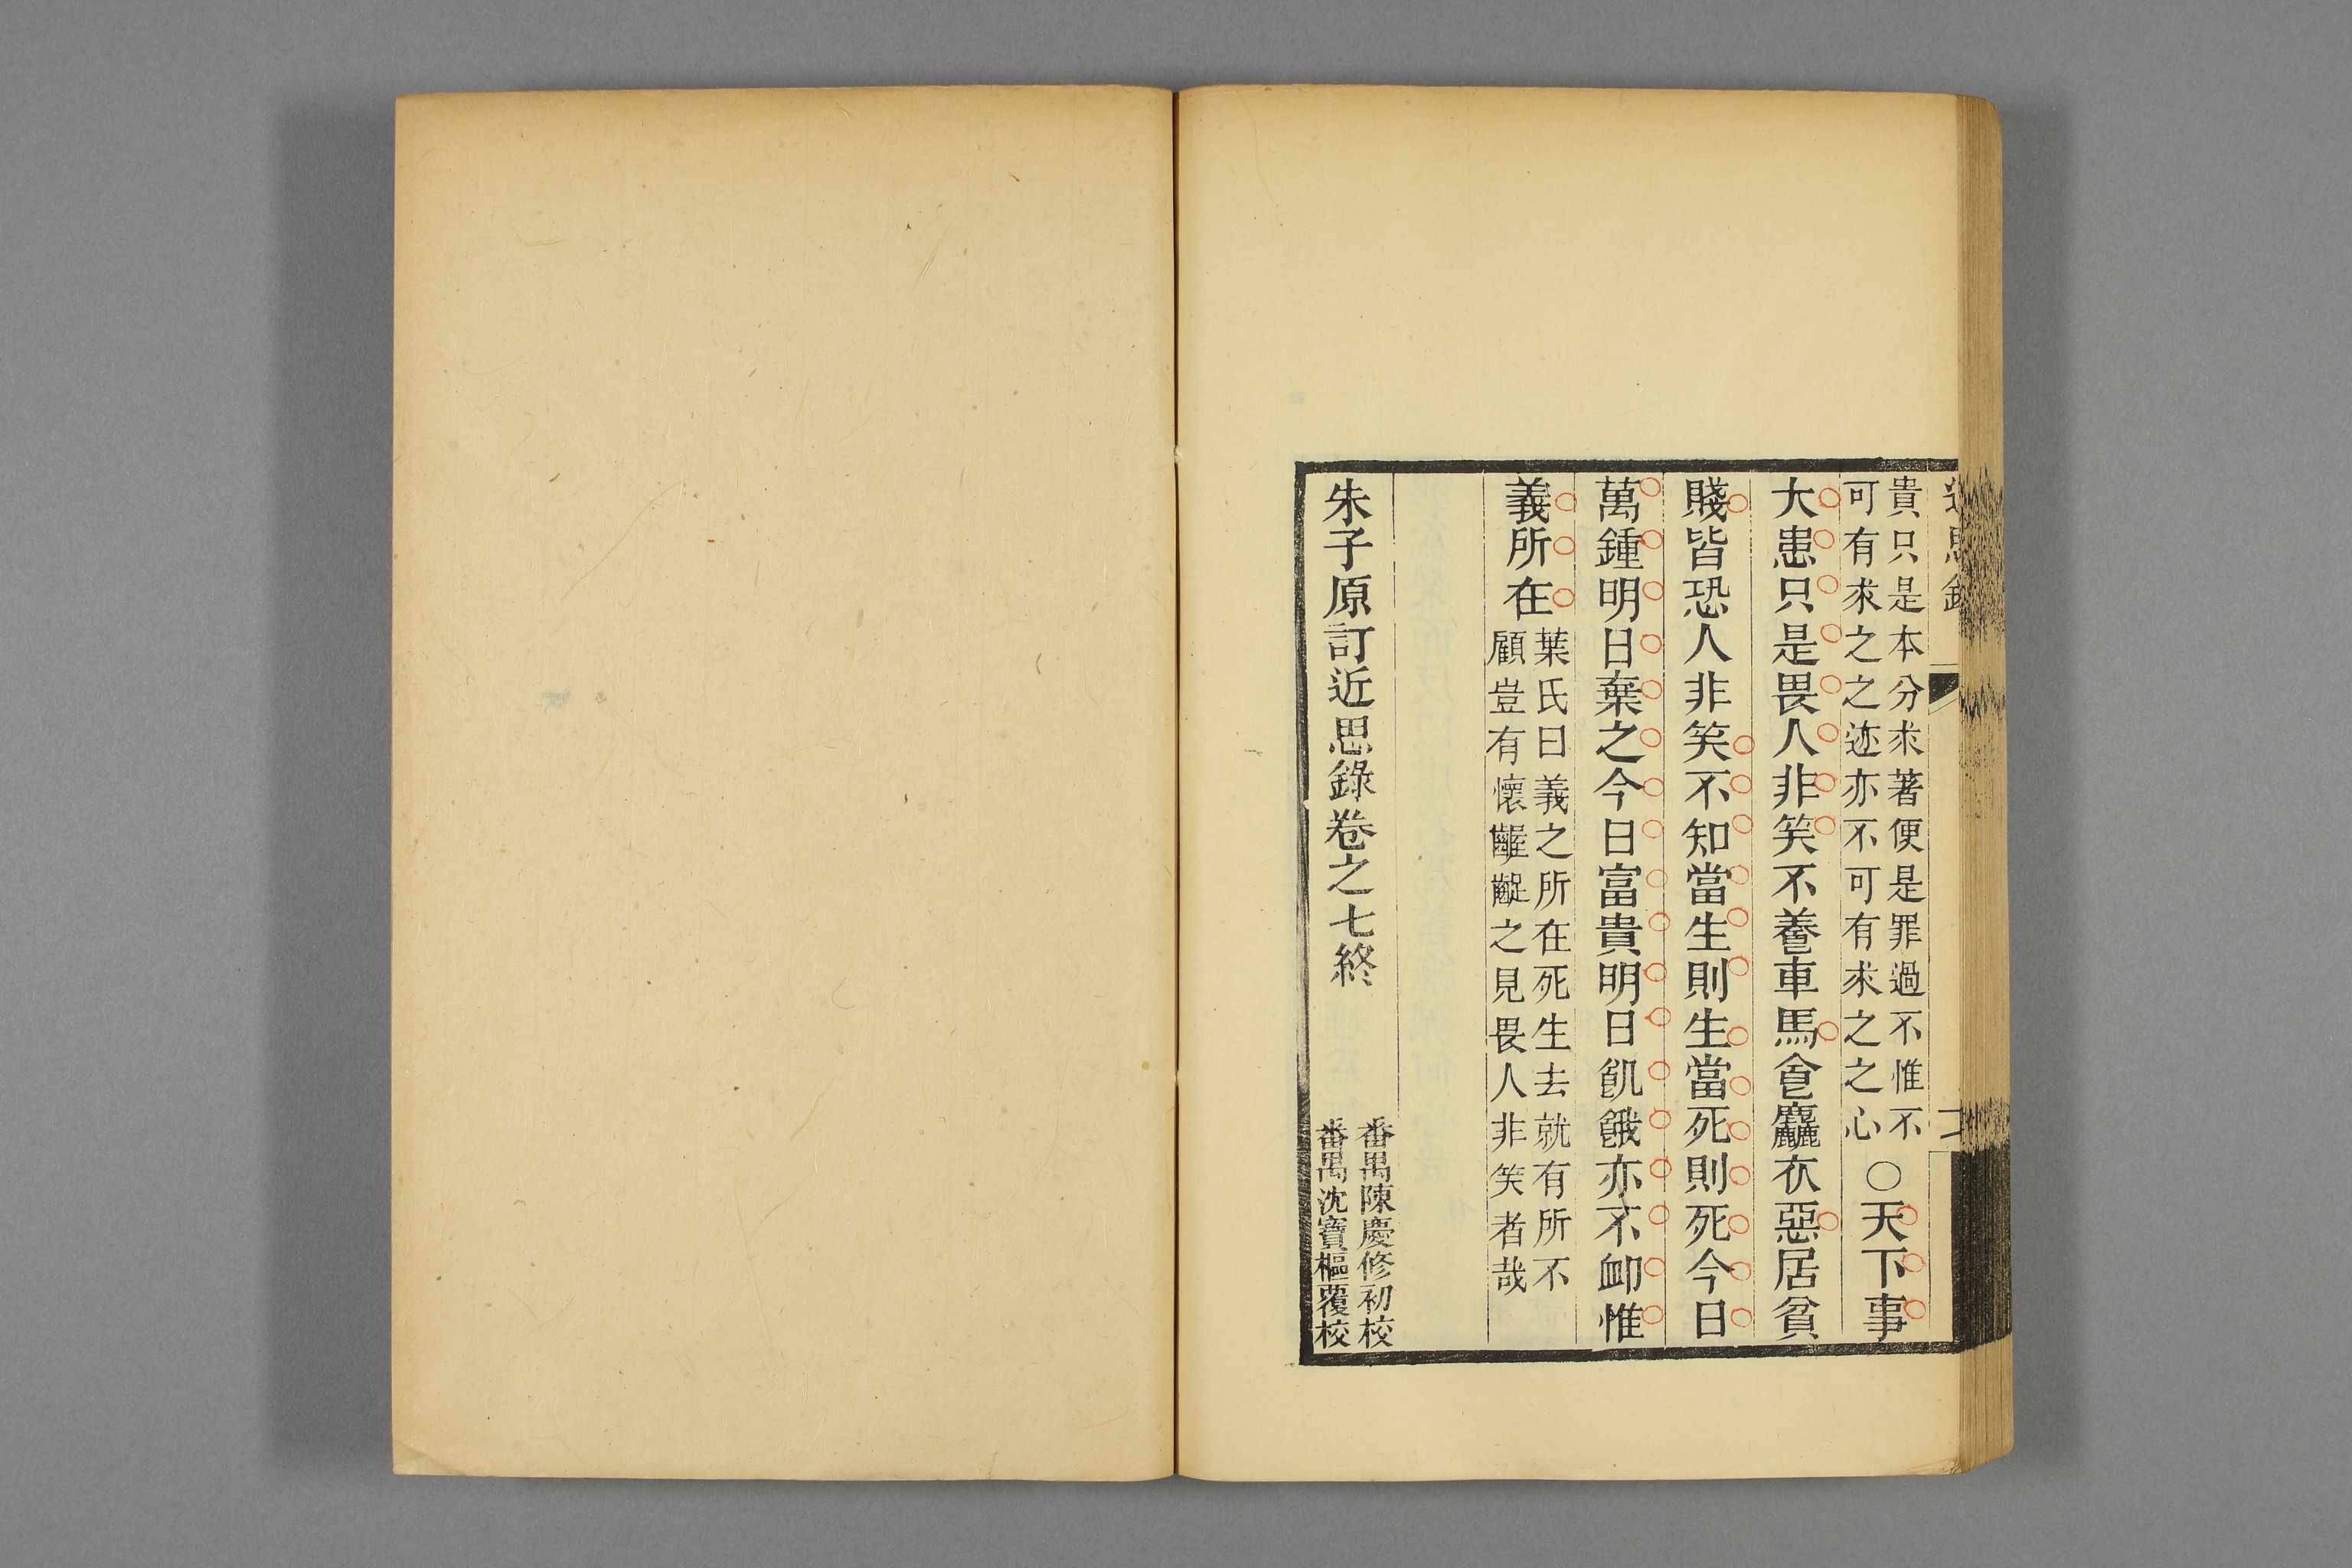 近思錄
貴只是本分求著便是罪過不惟不
可有求之之迹亦不可有求之之心
○天下事
大患只是畏人非笑不養車馬食麤衣惡居貧
賤皆恐人非笑不知當生則生當死則死今日
萬鍾明日棄之今日富貴明日飢餓亦不卹惟
義所在
葉氏曰義之所在死生去就有所不
顧豈有懷齷齪之見畏人非笑者哉
朱子原訂近思錄卷之七終
番禺陳慶修初校
番禺沈寶樞覆校